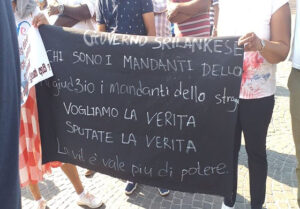 GOVERNO SRILANKESE
CHI SONO I MANDANTI DELLO
i mandanti dello
VOGLIAMO LA VERITA
SPUTATE LA VERITA
La vita vale più di potere.